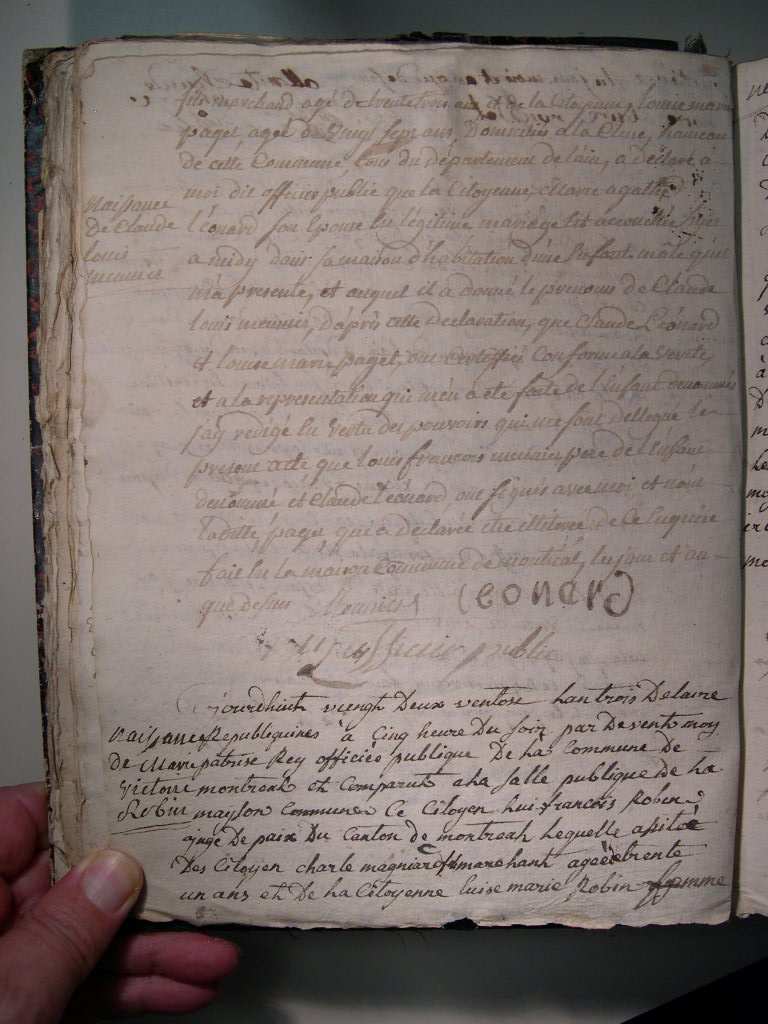 fils marchand agé de trente trois ans et de la Citoyenne Louise marie
paget agé de Vingt sept ans, Domiciliés a la Cluse, hameau
de cette Commune, tous du département de l'ain, a déclaré à
moi dit officier public que la Citoyenne Marie agathe
Naissance
De Claude
louis
meunier
léonard son Epouse En légitime mariage Est accouchée hier
a midy dans sa maison d'habitation d'une Enfant mâle qu'il
m'a presenté, et auquel il a donné le prenoms de Claude
louis meunier, D'après cette Declaration, que Claude Léonard
et louise marie paget, ont certiffiée Conforme a la Verité,
et a la representation qui m'en a été faite de l'Enfant denommés
j'ay redigé En vertu des pouvoirs qui me sont delégué le
present acte que louis françois meunier pere de l'Enfant
denommé et Claude Léonard, ont signés avec moi et non
laditte paget qui a declarée être illitérée de Ce Enquise
fait En la maison Commune de montréal, les jour et an
que dessus Meunier Leonard
Rey officier public
aujourdhuit viengt Deux ventose lan trois De la rre
Naissance
de Marie
Victoire
Robin
Republiquines à Cinq heure Du soir par Devent moy
patrise Rey officiée publique De la Commune De
montreal et Comparut a la salle publique de la
mayson Commune Ce Citoyen lui francois Robin
ajuge De paix Du Canton de montreal lequelle asité
Des Citoyen charle magniar marchant ageé de trente
un ans et De la Citoyenne luise marie Robin famme